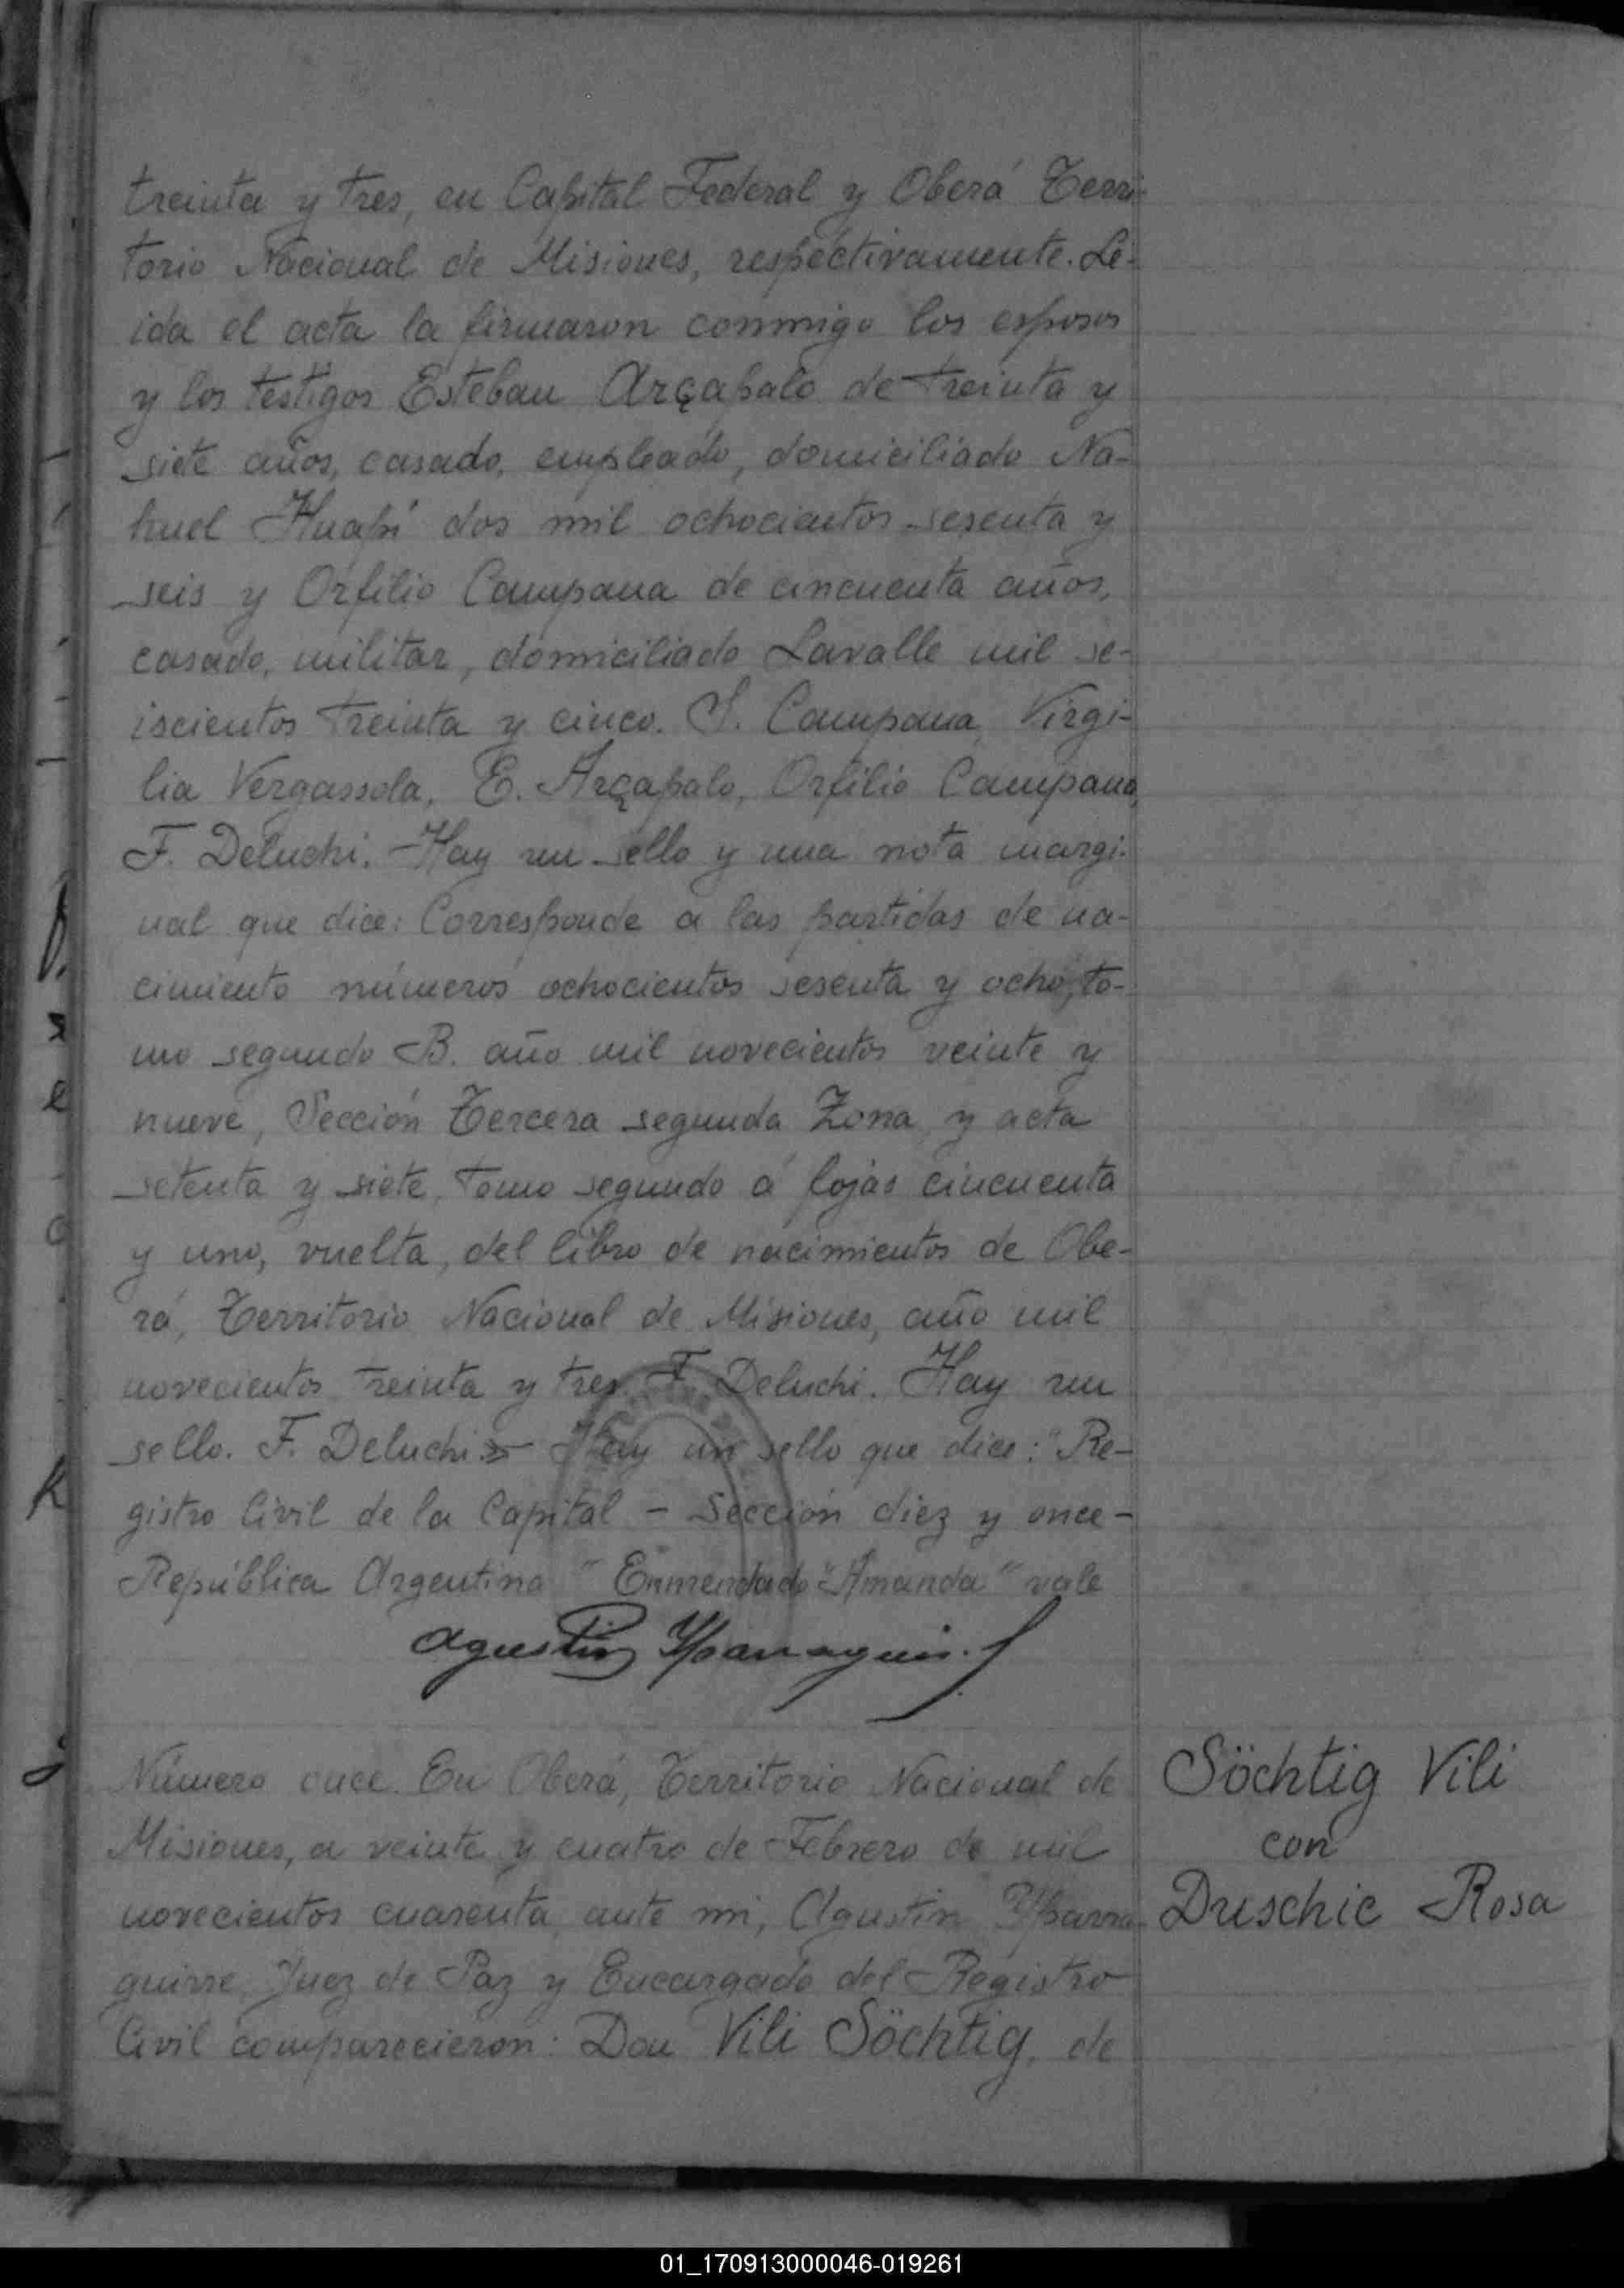 treinta y tres, en Capital Federal y Oberá Terri-
torio Nacional de Misiones, respectivamente. Le-
ida el acta la firmaron conmigo los esposos
y los testigos Esteban Arçapalo de treinta y
siete años, casado, empleado, domiciliado Na-
huel Huapí dos mil ochocientos sesenta y
seis y Orfilio Campana de cincuenta años,
casado, militar, domiciliado Lavalle mil se-
iscientos treinta y cinco. S. Campana, Virgi-
lia Vergassola, E. Arçapalo, Orfilio Campana,
F. Deluchi. Hay un sello y una nota margi-
nal que dice: Corresponde a las partidas de na-
cimiento números ochocientos sesenta y ocho, to-
mo segundo B. año mil novecientos veinte y
nueve, Sección Tercera segunda Zona, y acta
setenta y siete, tomo segundo á fojas cincuenta
y uno, vuelta, del libro de nacimientos de Obe-
rá, Territorio Nacional de Misiones, año mil
novecientos treinta y tres. F. Deluchi. Hay un
sello. F. Deluchi. Hay un sello que dice: "Re-
gistro Civil de la Capital - Sección diez y once -
República Argentina" Enmendado "Amanda" vale
Agustin Yparraguirre
Número once. En Oberá, Territorio Nacional de
Misiones, a veinte y cuatro de Febrero de mil
novecientos cuarenta, ante mi, Agustin Yparra-
guirre, Juez de Paz y Encargado del Registro
Civil comparecieron: Don Vili Söchtig, de
Söchtig Vili
con
Druschic Rosa
01_170913000046-019261